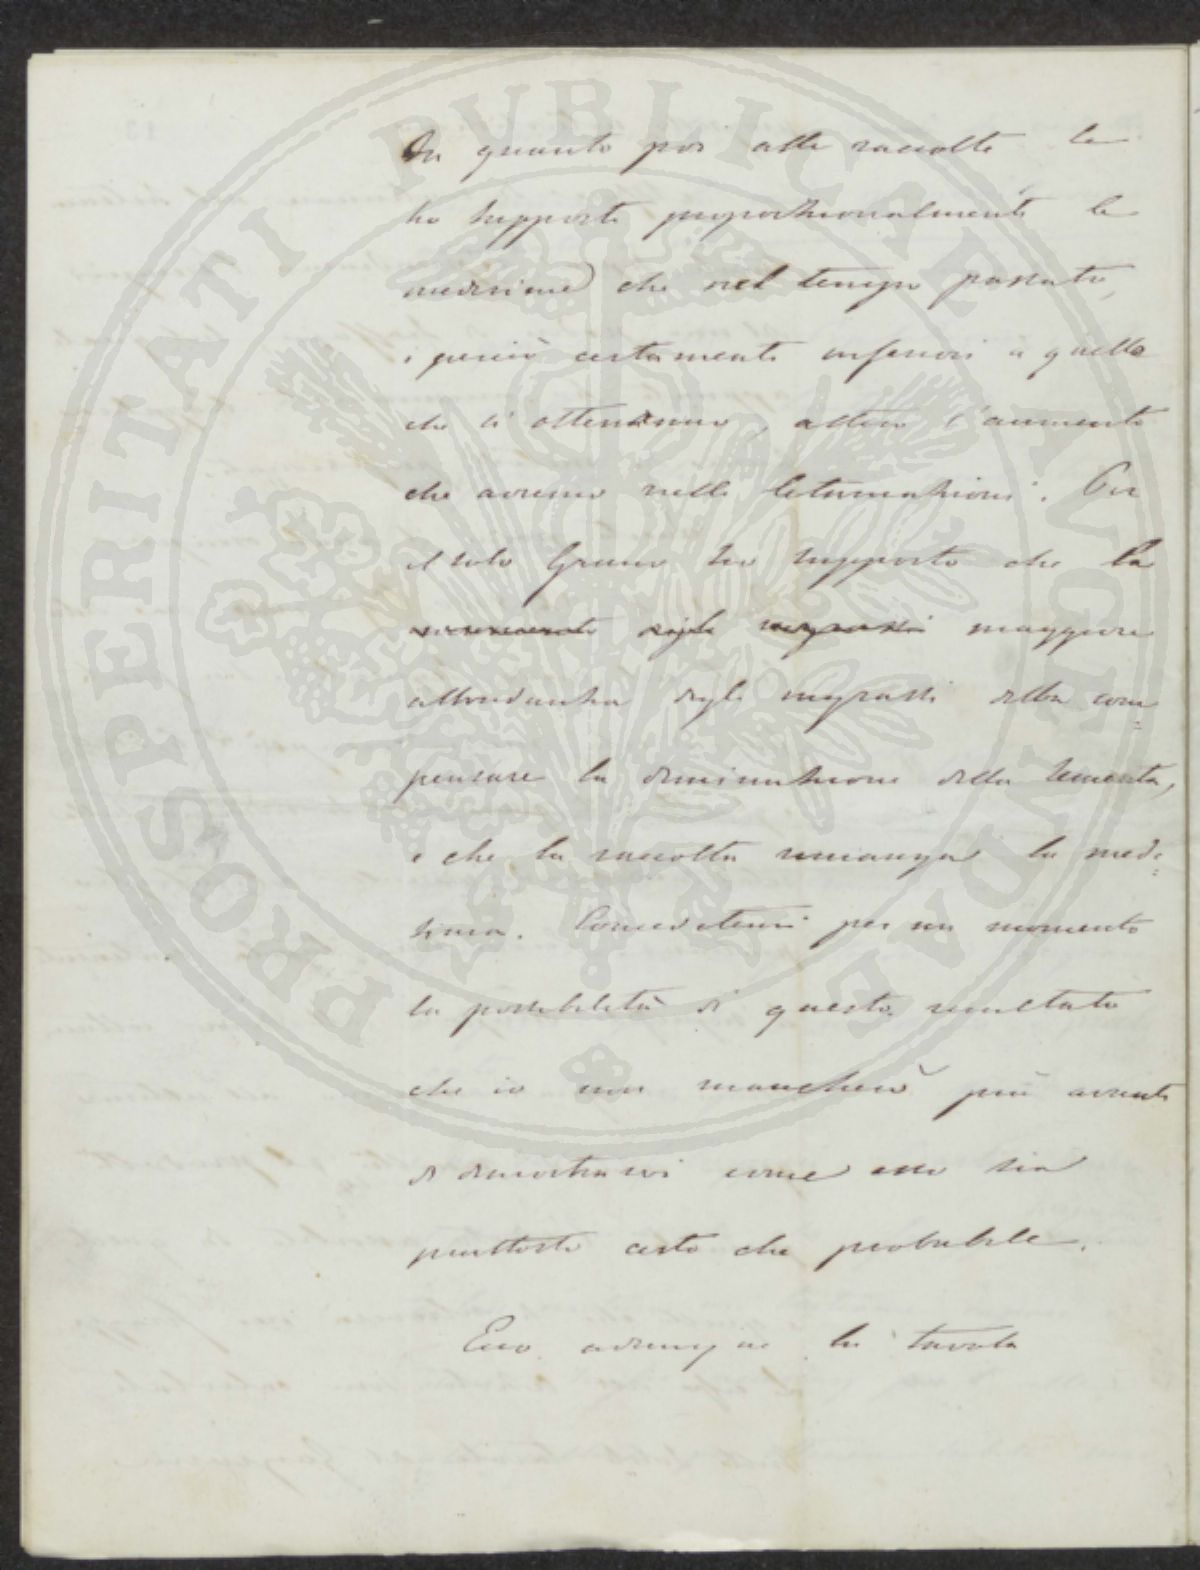 In quanto poi alle raccolte le
ho supposte proporzionalmente le
medesime che nel tempo passato,
e perciò certamente inferiori a quelle
che si otterranno, atteso l'aumento
che avremo nelle letamazioni. Per
il solo Grano ho supposto che la
degli ingrassi maggiore
abbondanza degli ingrassi debba com=
pensare la diminuzione della sementa,
e che la raccolta rimanga la mede=
sima. Concedetemi per un momento
la possibilità di questo resultato
che io non mancherò più avanti
di dimostrarvi come esso sia
piuttosto certo che probabile.
Ecco adunque la tavola
PROSPERITATI PUBLICAE AUGENDAE